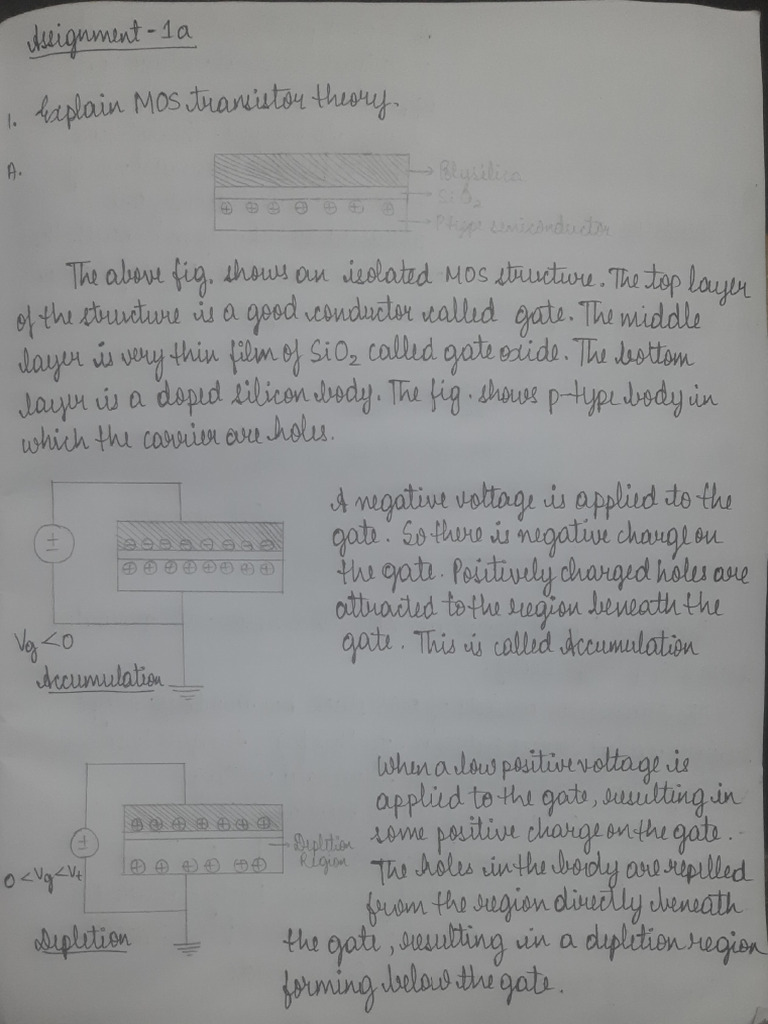 Assignment - 1a
1. Explain MOS transistor theory.
A.
Polysilica
SiO₂
P-type semiconductor
⊕ ⊕ ⊕ ⊕ ⊕ ⊕ ⊕
The above fig. shows an isolated MOS structure. The top layer
of the structure is a good conductor called gate. The middle
layer is very thin film of SiO₂ called gate oxide. The bottom
layer is a doped silicon body. The fig. shows p-type body in
which the carrier are holes.
±
⊖ ⊖ ⊖ ⊖ ⊖ ⊖ ⊖ ⊖
⊕ ⊕ ⊕ ⊕ ⊕ ⊕ ⊕ ⊕
Vg < 0
Accumulation
A negative voltage is applied to the
gate. So there is negative charge on
the gate. Positively charged holes are
attracted to the region beneath the
gate. This is called Accumulation
±
⊕ ⊕ ⊕ ⊕ ⊕ ⊕ ⊕
Depletion
Region
⊕ ⊕ ⊕ ⊕ ⊕ ⊕
0 < Vg < Vt
Depletion
When a low positive voltage is
applied to the gate, resulting in
some positive charge on the gate.
The holes in the body are repilled
from the region directly beneath
the gate, resulting in a depletion region
forming below the gate.